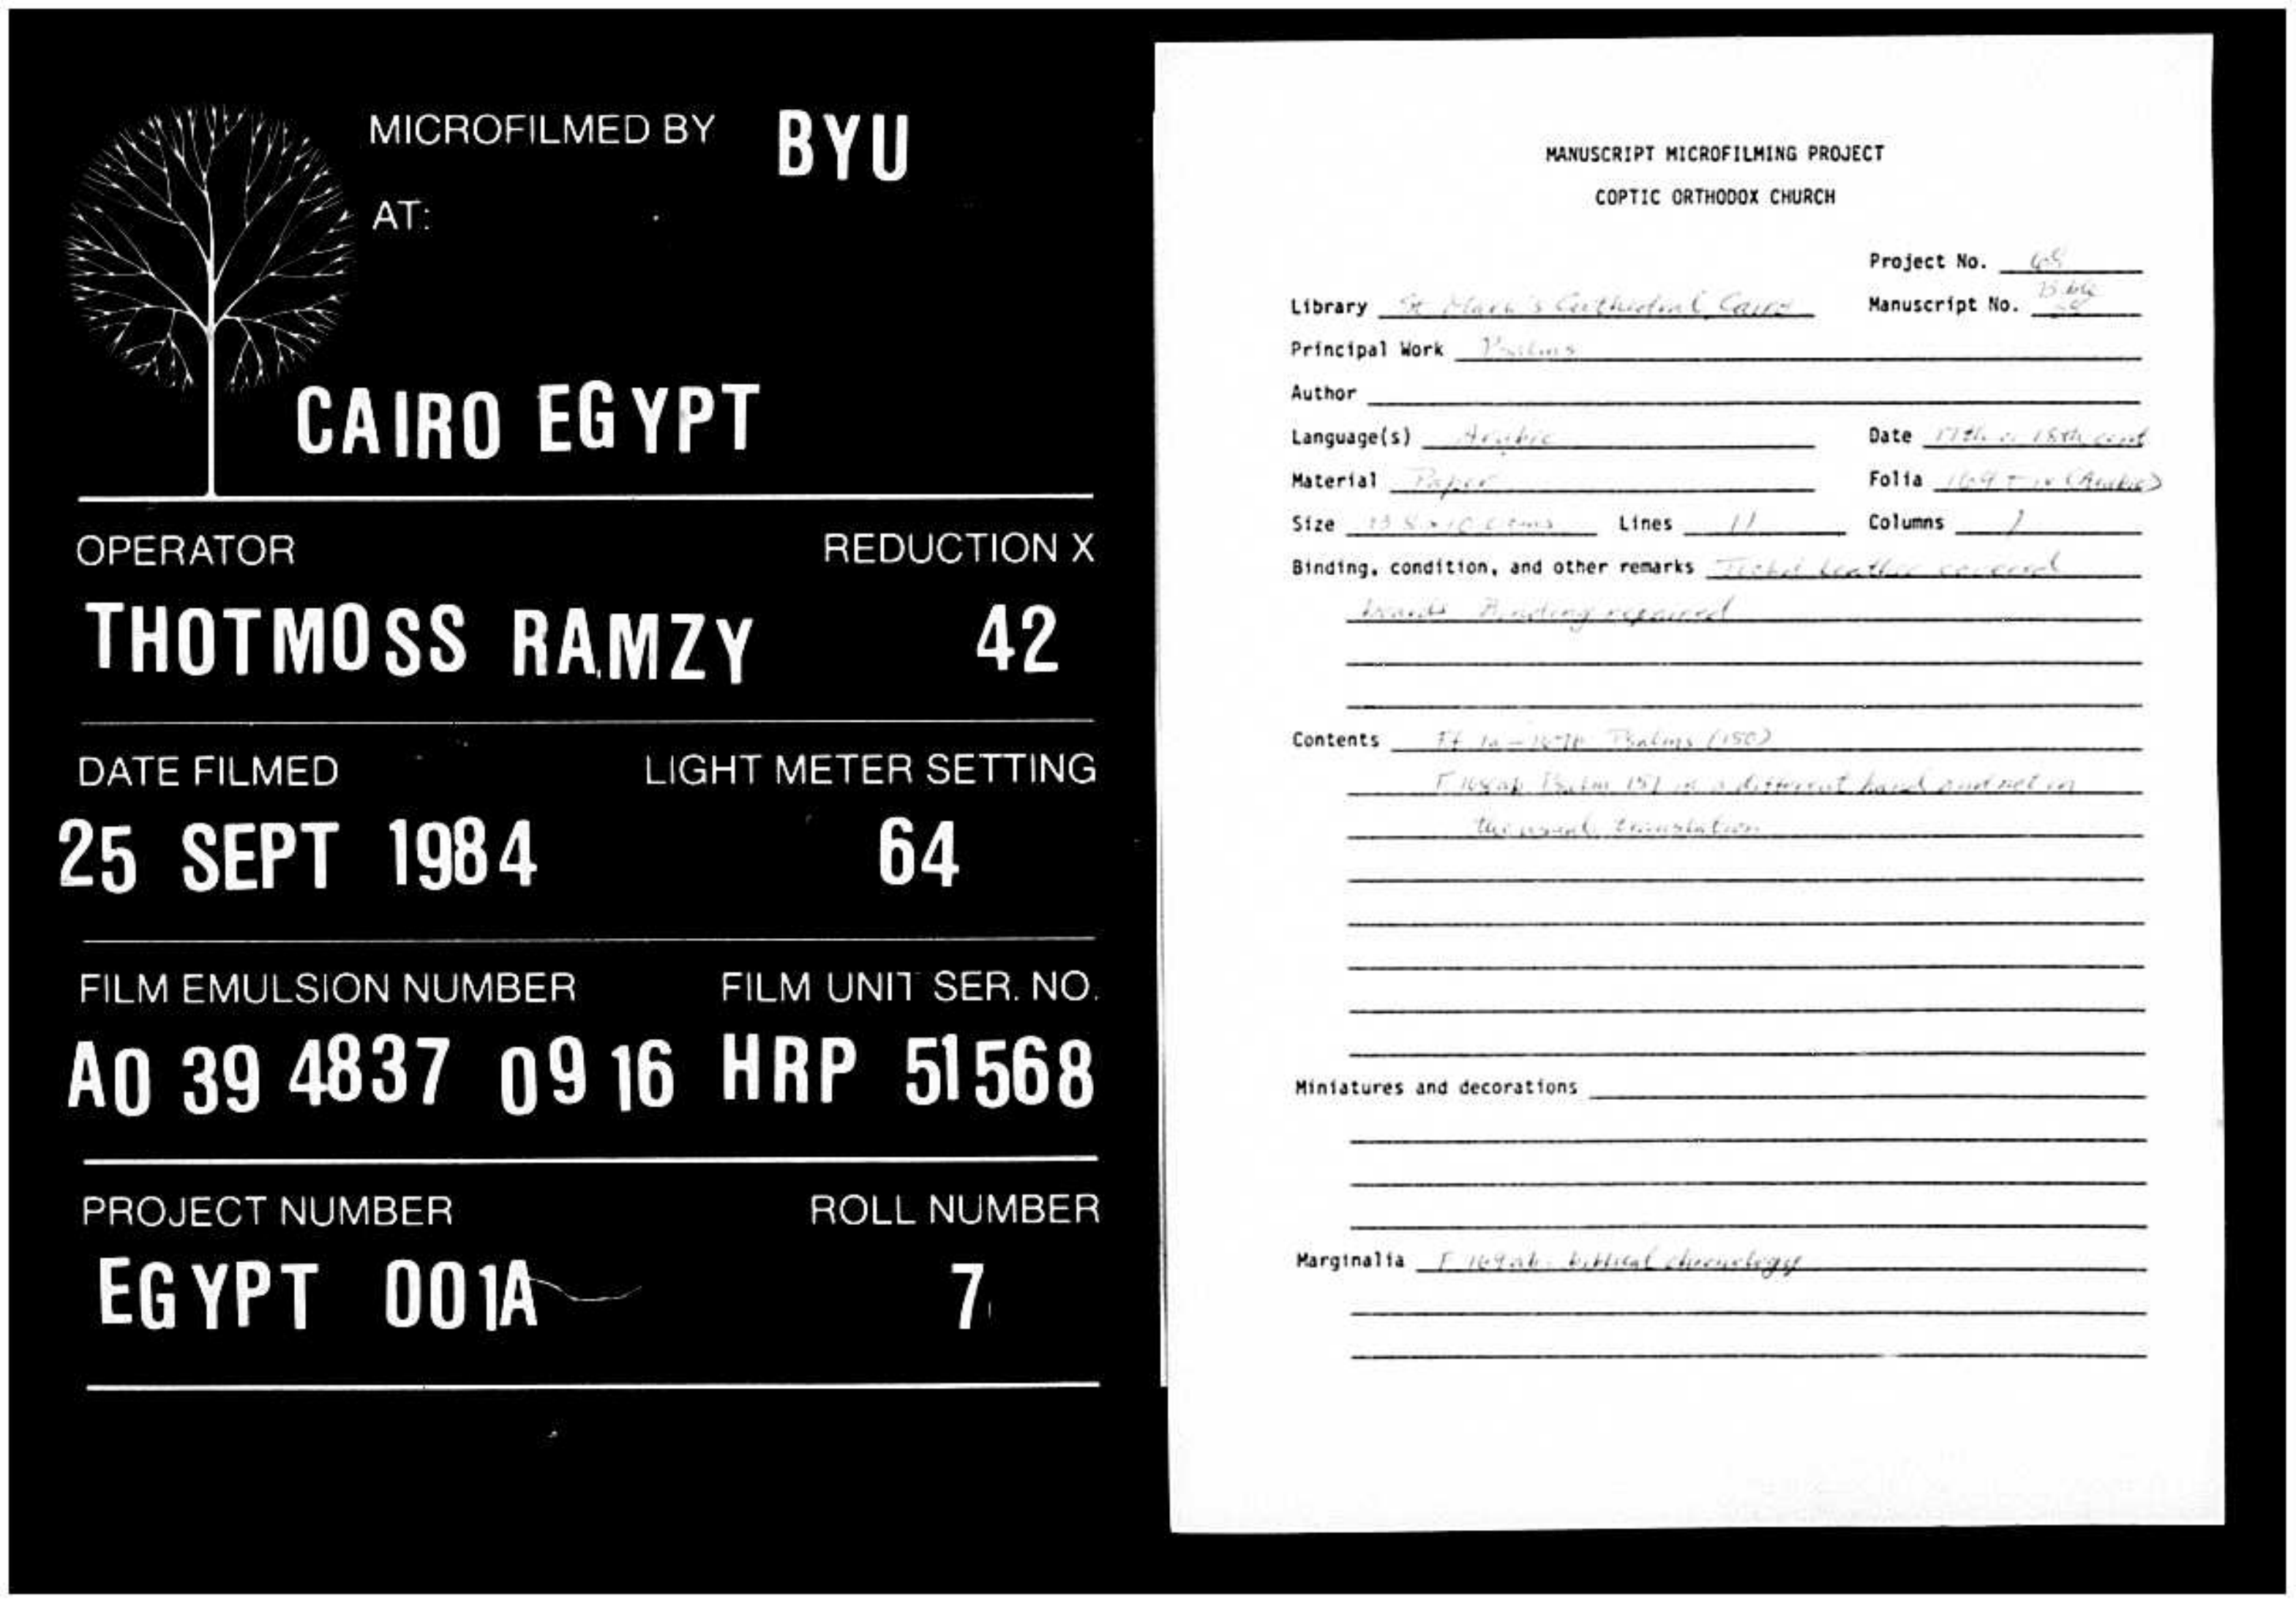 MICROFILMED BY BYU
AT:
CAIRO EGYPT
OPERATOR REDUCTION X
THOTMOSS RAMZY 42
DATE FILMED LIGHT METER SETTING
25 SEPT 1984 64
FILM EMULSION NUMBER FILM UNIT SER. NO.
A0 39 4837 09 16 HRP 51568
PROJECT NUMBER ROLL NUMBER
EGYPT 001A 7
MANUSCRIPT MICROFILMING PROJECT
COPTIC ORTHODOX CHURCH
Project No.
Library St Mark's Cathedral Cairo Manuscript No. Bible
Principal Work Psalms
Author
Language(s) Arabic Date 17th or 18th cent
Material Paper Folia 169 (Arabic)
Size Lines 11 Columns 1
Binding, condition, and other remarks leather covered
boards Binding repaired
Contents Ff Psalms (150)
Psalm 151 in a different hand and not in
the usual translation
Miniatures and decorations
Marginalia F 169ab: biblical chronology